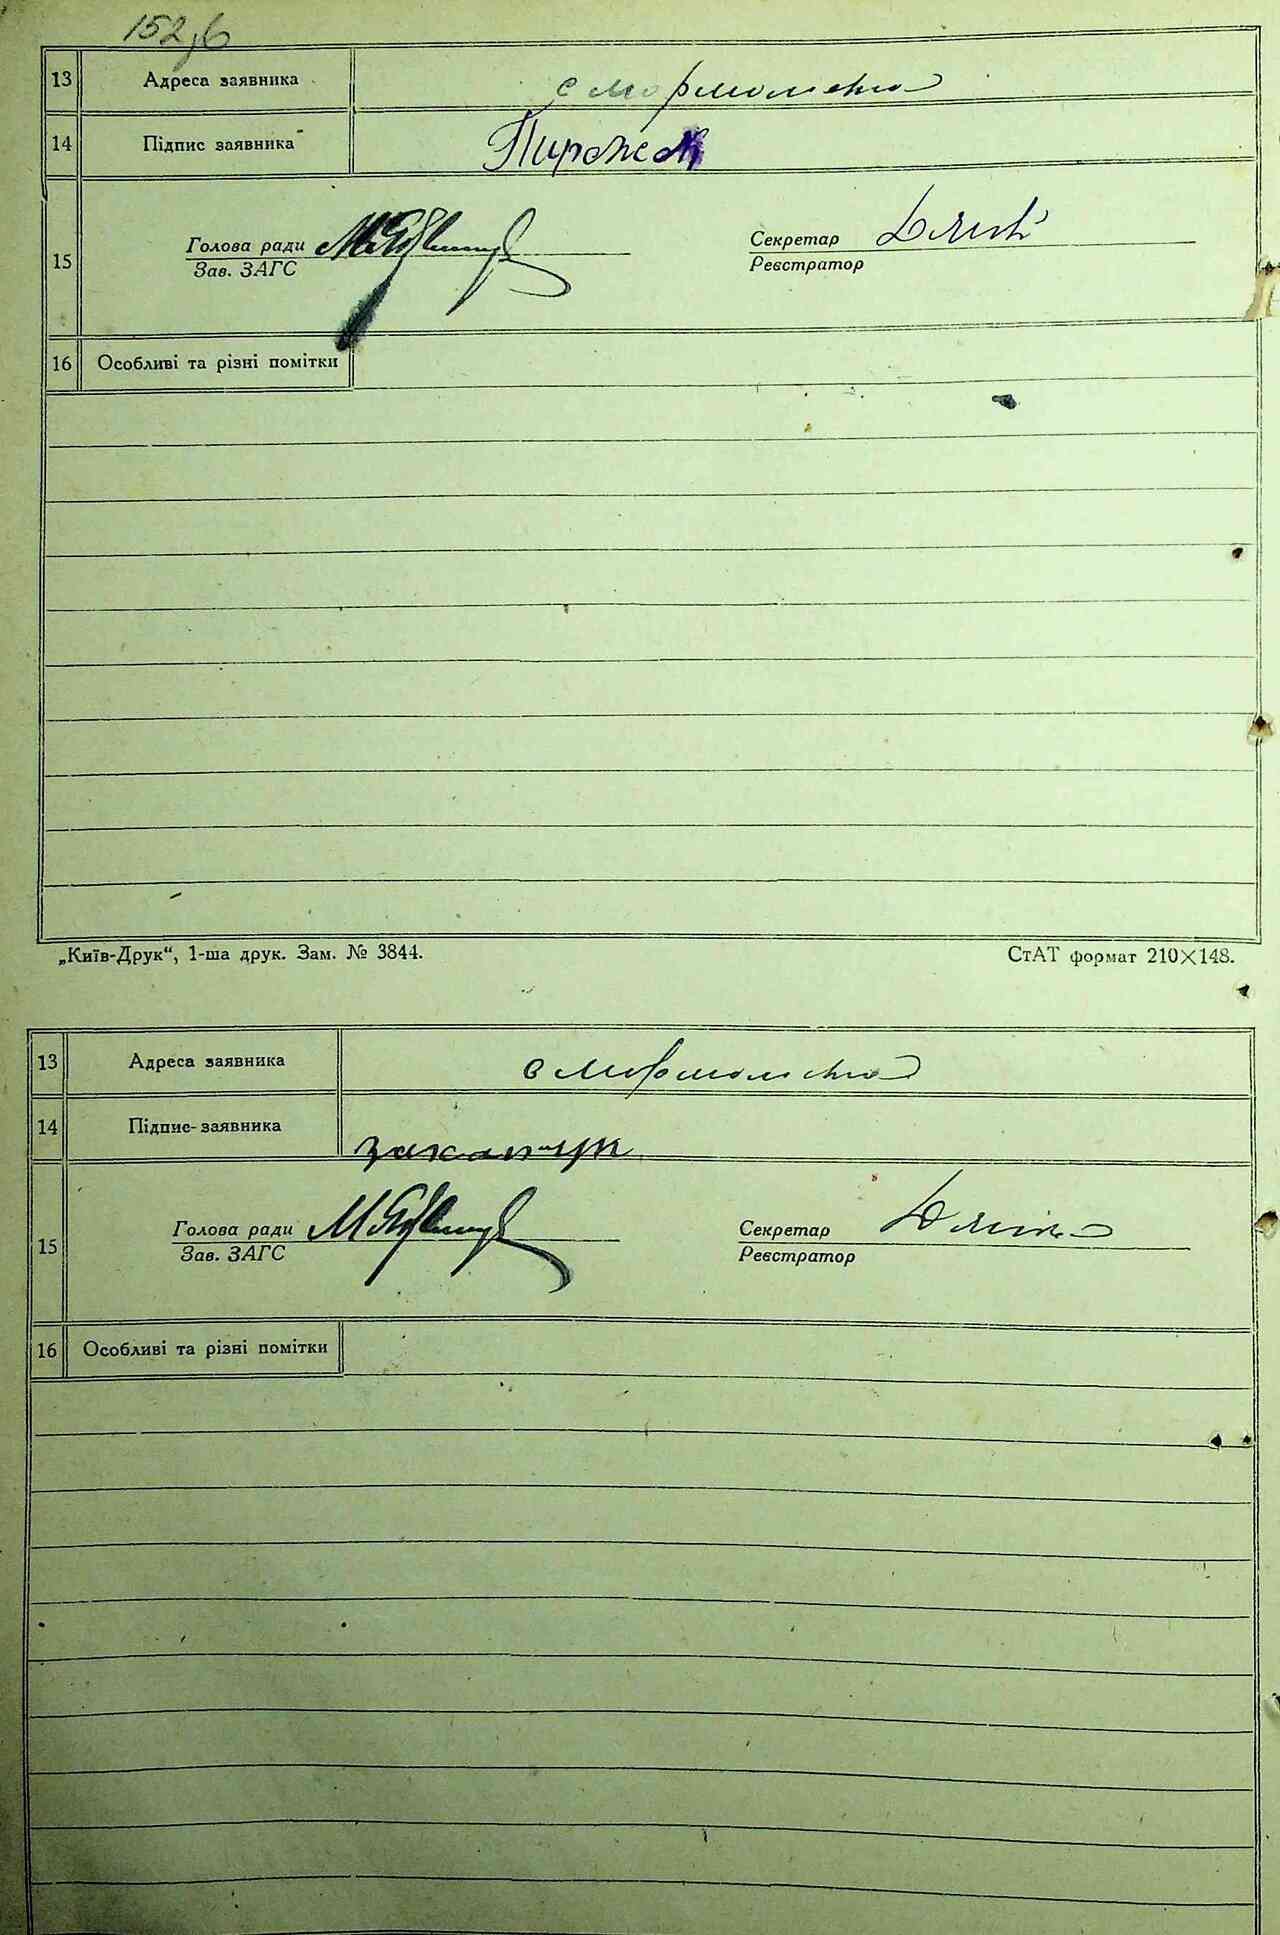 152,6
13 Адреса заявника с Мормолівка
14 Підпис заявника Пирожок
15 Голова ради Секретар
Зав. ЗАГС Реєстратор
16 Особливі та різні помітки
„Київ-Друк“, 1-ша друк. Зам. № 3844. СтАТ формат 210×148.
13 Адреса заявника с Мормолівка
14 Підпис заявника
15 Голова ради Секретар
Зав. ЗАГС Реєстратор
16 Особливі та різні помітки